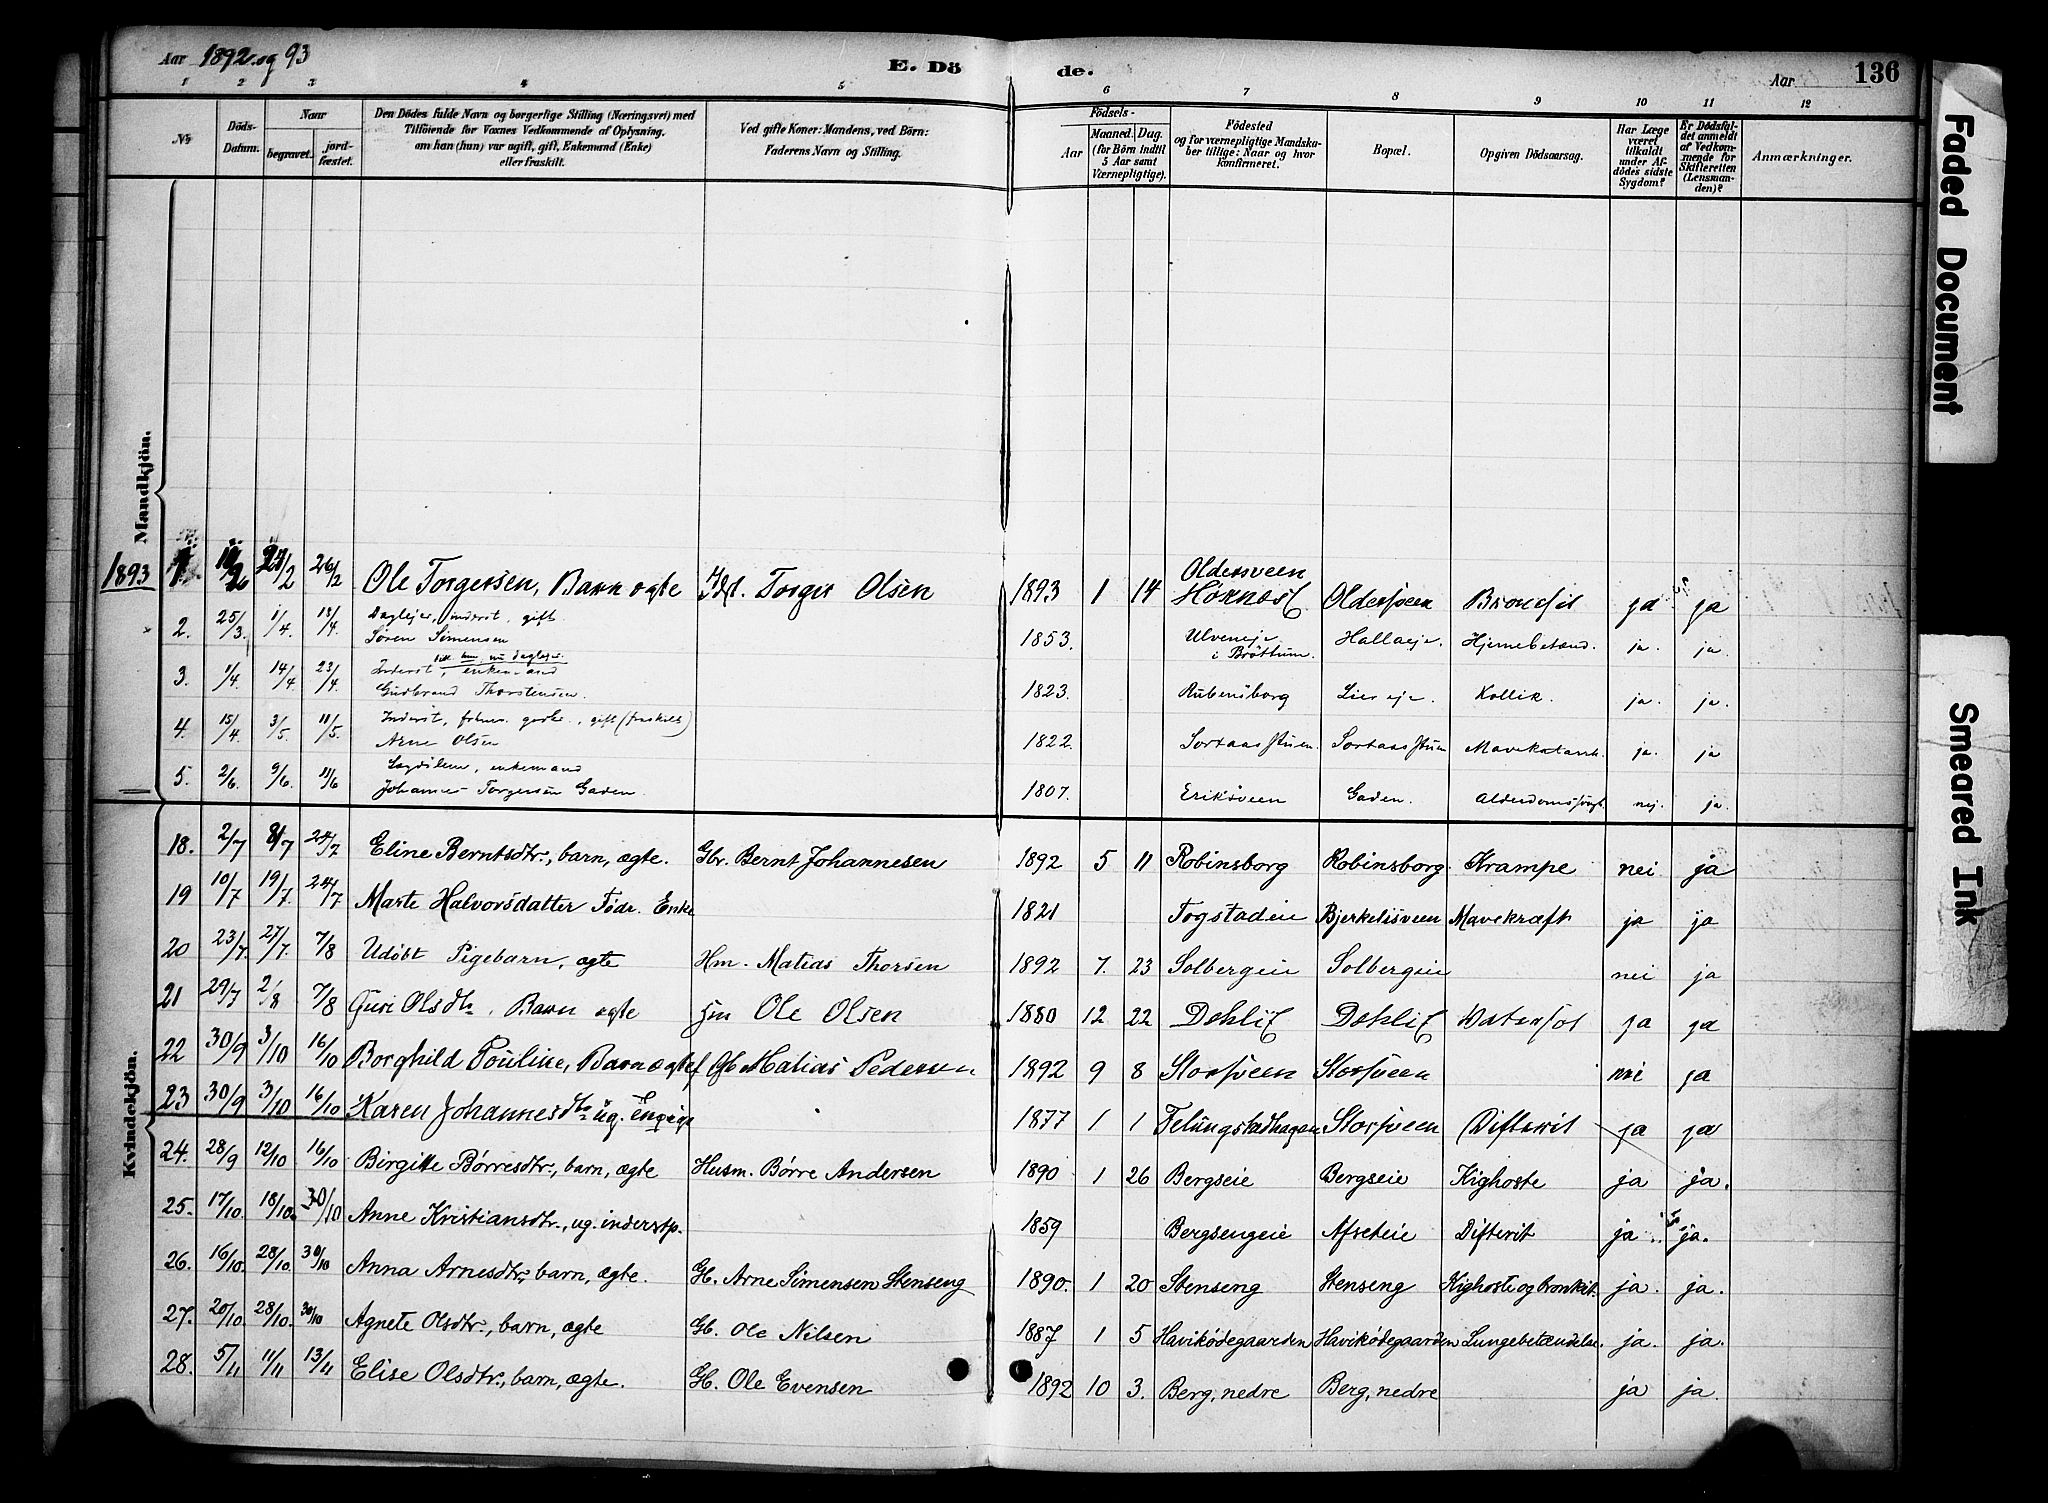 Aar 1892 og 93 E. Dö de. Aar 136
1 2 3 4 5 6 7 8 9 10 11 12
No Döds-Datum. Naar begravet. jord-fæstet. Den Dödes fulde Navn og borgerlige Stilling (Næringsvei) med Tilföiende for Voxnes Vedkommende af Oplysning, om han (hun) var ugift, gift, Enkemand (Enke) eller fraskilt. Ved gifte Koner: Mandens, ved Börn: Faderens Navn og Stilling. Födsels- Aar Maaned. Dag. (for Börn indtil 5 Aar samt Værnepligtige). Födested og for værnepligtige Mandska-ber tillige: Naar og hvor konfirmeret. Bopæl. Opgiven Dödsaarsag. Har Læge været tilkaldt under Af-dödes sidste Sygdom? Er Dödsfal-det anmeldt af Vedkom-mende for Skifteretten (Lensman-den)? Anmærkninger.
Mandkjön.
1893 1. 24/2 26/2 Ole Torgersen, Barn ægte Torger Olsen 1893 1 14 Oldersveen Oldersveen Bronchit ja ja
2. 25/3. 1/4. 18/4. Daglejer, inderst, gift.
Søren Simensen 1853. Ulveneje i Brøttum. Hallaeje. Hjernebetænd. ja. ja.
3. 1/4. 14/4. 23/4. Inderst, enkemand
Gudbrand Thorstensen. 1823. Rubensborg Lier eje. Kollik. ja. ja.
4. 15/4. 3/5. 11/5. Inderst, gift (fraskilt)
Arne Olsen 1822. Sortaasstuen. Sortaasstuen Mavekatarrh ja. ja
5. 2/6. 9/6. 11/6 enkemand
Johannes Torgersen Gaden. 1807. Eriksveen Gaden. nej. ja.
Kvindekjön.
18. 2/7 8/7 24/7 Eline Berntsdtr., barn, ægte. Gbr. Bernt Johannesen 1892 5 11 Robinsborg Robinsborg. Krampe nei ja
19 10/7 19/7. 24/7 Marte Halvorsdatter Födr. Enke 1821 Togstadeie Bjerkelisveen Mavekræft ja ja
20 23/7. 27/7. 7/8 Udöbt Pigebarn, ægte Hm. Matias Thorsen 1892 7. 23 Solbergeie Solbergeie nei ja
21 29/7 2/8 7/8 Guri Olsdtr. Barn ægte Hm Ole Olsen 1880 12 22 Dehlie Dehlie Vatersot ja ja
22 30/9 3/10 16/10 Borghild Pouline, Barn ægte Gb Matias Pedersen 1892 9 8 Storsveen Storsveen nei ja
23 30/9 3/10 16/10 Karen Johannesdtr ug. 1877 1 1 Felungstadhagen Storsveen Difterit ja ja
24. 28/9 12/10 16/10 Birgitte Børresdtr., barn, ægte Husm. Børre Andersen 1890 1 26 Bergseie Bergseie Kighoste ja ja.
25. 17/10. 18/10. 30/10 Anne Kristiansdtr., ug. inderstp. 1859 Bergsengeie Afseteie Difterit ja ja.
26. 16/10. 28/10. 30/10 Anna Arnesdtr., barn, ægte. Gb. Arne Simensen Stenseng 1890. 1 20 Stenseng Stenseng Kighoste og bronkit. ja. ja.
27. 20/10. 28/10. 30/10 Agnete Olsdtr., barn, ægte Gb. Ole Nilsen 1887 1 5 Havikødegaarden Havikødegaarden Lungebetændelse. ja. ja.
28. 5/11 11/11 13/11 Elise Olsdtr., barn, ægte. Gb. Ole Evensen 1892 10 3. Berg, nedre Berg, nedre ja ja.
Faded Document
Smeared Ink